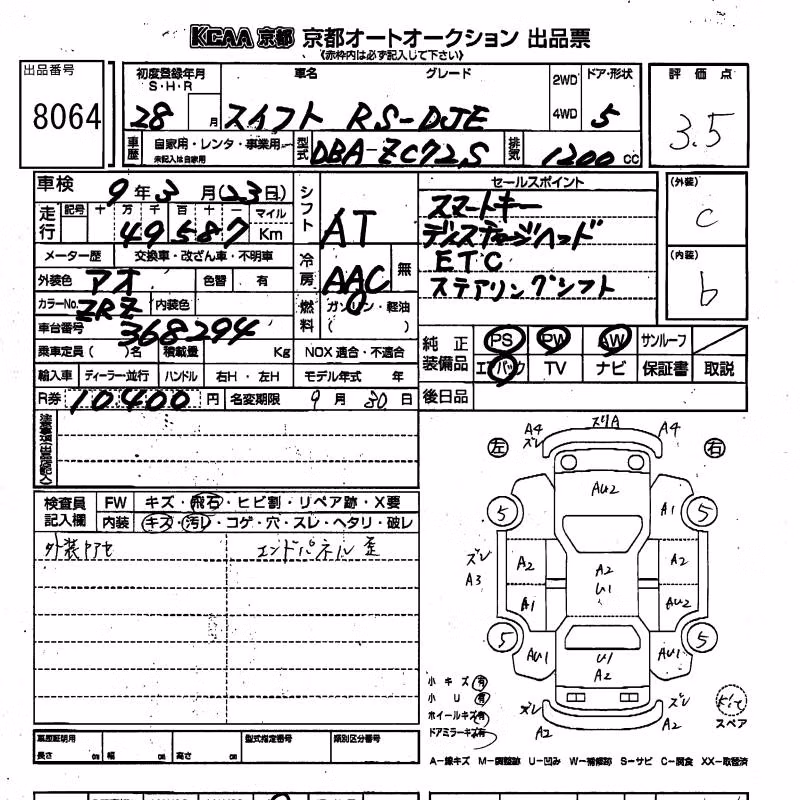 KCAA 京都 京都オートオークション 出品票
《赤枠内は必ず記入して下さい》
出品番号
8064
初度登録年月
S・H・R
28 月
車名 グレード
スイフト RS-DJE
2WD
4WD
ドア・形状
5
評価点
3.5
車歴
自家用・レンタ・事業用
未記入は自家用
型式
DBA-ZC72S
排気
1200 cc
車検
9年3月(23日)
走行
記号 十 万 千 百 十 一
49587
マイル
Km
メーター歴 交換車・改ざん車・不明車
外装色 アオ 色替 有
カラーNo. ZRZ 内装色
車台番号 368294
乗車定員( )名 積載量 Kg
輸入車 ディーラー・並行 ハンドル 右H・左H
R券 10400 円 名変期限 9月30日
シフト
AT
冷房
AAC 無
燃料
ガソリン・軽油
( )
NOX 適合・不適合
モデル年式 年
セールスポイント
スマートキー
ディスチャージヘッド
ETC
ステアリングシフト
(外装)
C
(内装)
b
純正装備品
PS PW AW サンルーフ
エアバック TV ナビ 保証書 取説
後日品
注意事項(出品店記入)
検査員記入欄
FW キズ・飛石・ヒビ割・リペア跡・X要
内装 キズ・汚レ・コゲ・穴・スレ・ヘタリ・破レ
外装ヤケセ
エンドパネル 歪
左 右
A4 ズレ
ズリA
A4
AU2
5 5
A1
ズレ
A3
A2 A2 A2
U1
A1 AU2
5 5
AU1 U1 AU1
A2
ズレ A2
ズレ A2
小キズ 有
小 U 有
ホイールキズ 有
ドアミラーキズ 有
スペア
車歴証明用
長さ cm 幅 cm 高さ cm
型式指定番号
類別区分番号
A-線キズ M-調整跡 U-凹み W-補修跡 S-サビ C-腐食 XX-取替済